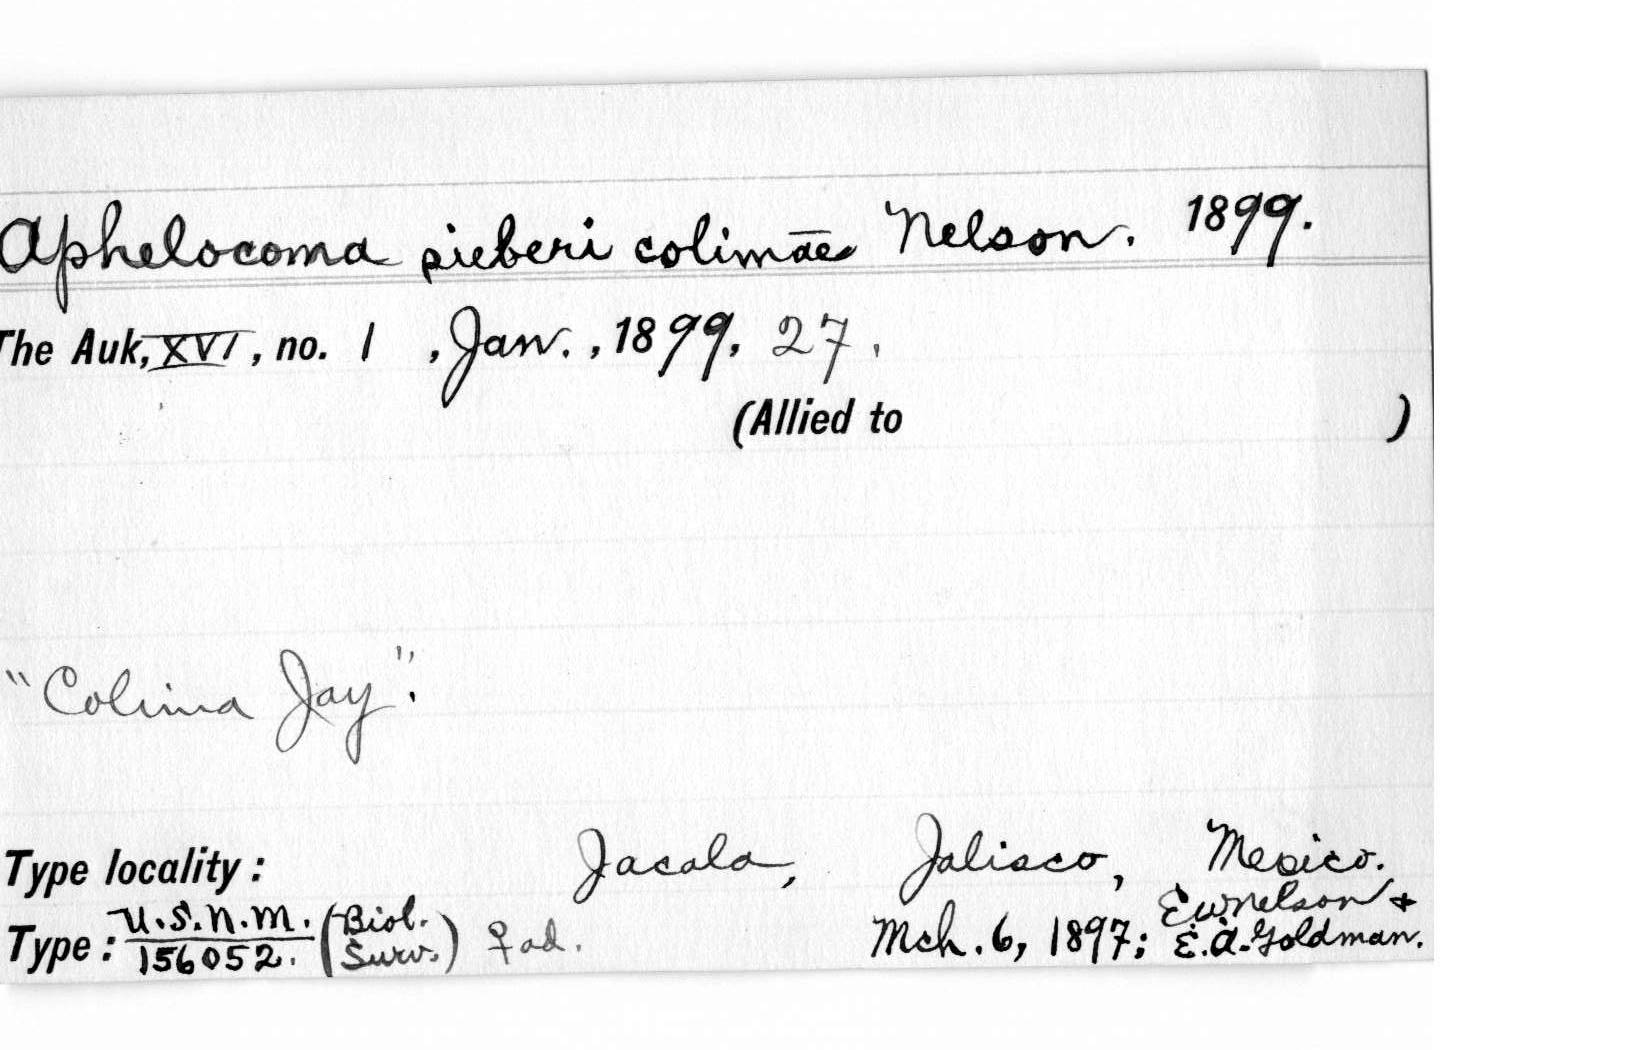 Aphelocoma sieberi colimae Nelson. 1899.
The Auk, XVI, no. 1, Jan., 1899, 27.
(Allied to )
"Colima Jay".
Type locality: Jacala, Jalisco, Mexico.
Type: U.S.N.M. 156052. (Biol. Surv.) ♀ ad. Mch. 6, 1897; E W Nelson & E. A. Goldman.